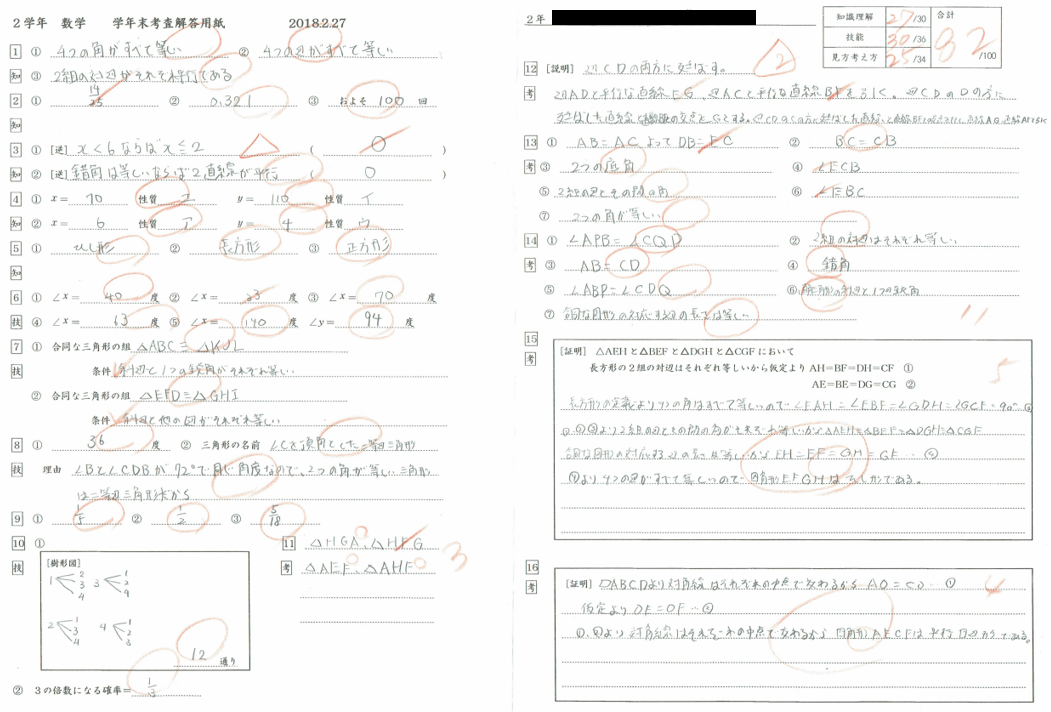 2学年 数学 学年末考査解答用紙 2018.2.27
1 ① 4つの角がすべて等しい ② 4つの辺がすべて等しい
知 ③ 2組の対辺がそれぞれ平行である
2 ① 14/25 ② 0.321 ③ およそ 100 回
知
3 ① [逆] x<6ならばx≦2 ( 0 )
知 ② [逆] 錯角は等しいならば2直線が平行 ( 0 )
4 ① x= 70 性質 エ y= 110 性質 イ
知 ② x= 6 性質 ア y= 4 性質 ウ
5 ① ひし形 ② 長方形 ③ 正方形
知
6 ① ∠x= 40 度 ② ∠x= 23 度 ③ ∠x= 70 度
技 ④ ∠x= 63 度 ⑤ ∠x= 140 度 ∠y= 94 度
7 ① 合同な三角形の組 △ABC≡△KJL
技 条件 斜辺と1つの鋭角がそれぞれ等しい
② 合同な三角形の組 △EFD≡△GHI
条件 斜辺と他の辺がそれぞれ等しい
8 ① 36 度 ② 三角形の名前 ∠Cを頂角とした二等辺三角形
技 理由 ∠Bと∠CDBが72°で同じ角度なので、2つの角が等しい三角形
は二等辺三角形だから
9 ① 1/5 ② 1/2 ③ 5/18
10 ①
技 [樹形図]
1 2 3 4 3 1 2 4
2 1 3 4 4 1 2 3
12 通り
② 3の倍数になる確率= 1/3
11 △HGA、△HFG
考 △AEF、△AHF
3
2年
知識理解 27/30 合計
技能 30/36 82/100
見方考え方 25/34
12 [証明] 辺CDの両方に延ばす。 2
考
13 ① AB=AC よって DB=EC ② BC=CB
考 ③ 2つの底角 ④ ∠ECB
⑤ 2組の辺とその間の角 ⑥ ∠EBC
⑦ 2つの角が等しい
14 ① ∠APB=∠CQD ② 2組の対辺はそれぞれ等しい
考 ③ AB=CD ④ 錯角
⑤ ∠ABP=∠CDQ ⑥ 直角三角形の斜辺と1つの鋭角
⑦ 合同な図形の対応する辺の長さは等しい
11
15
考 [証明] △AEHと△BEFと△DGHと△CGFにおいて
長方形の2組の対辺はそれぞれ等しいから仮定より AH=BF=DH=CF ①
AE=BE=DG=CG ②
5
長方形の定義より4つの角はすべて等しいので∠EAH=∠EBF=∠GDH=∠GCF=90° ③
①、②、③より2組の辺とその間の角がそれぞれ等しいから△AEH≡△BEF≡△DGH≡△CGF
合同な図形の対応する辺の長さは等しいから EH=EF=GH=GF … ④
④より4つの辺がすべて等しいので四角形EFGHはひし形である。
16
考 [証明] ▱ABCDより対角線はそれぞれの中点で交わるから AO=CO … ①
4
仮定より OE=OF … ②
①、②より対角線はそれぞれの中点で交わるから四角形AECFは平行四辺形である。